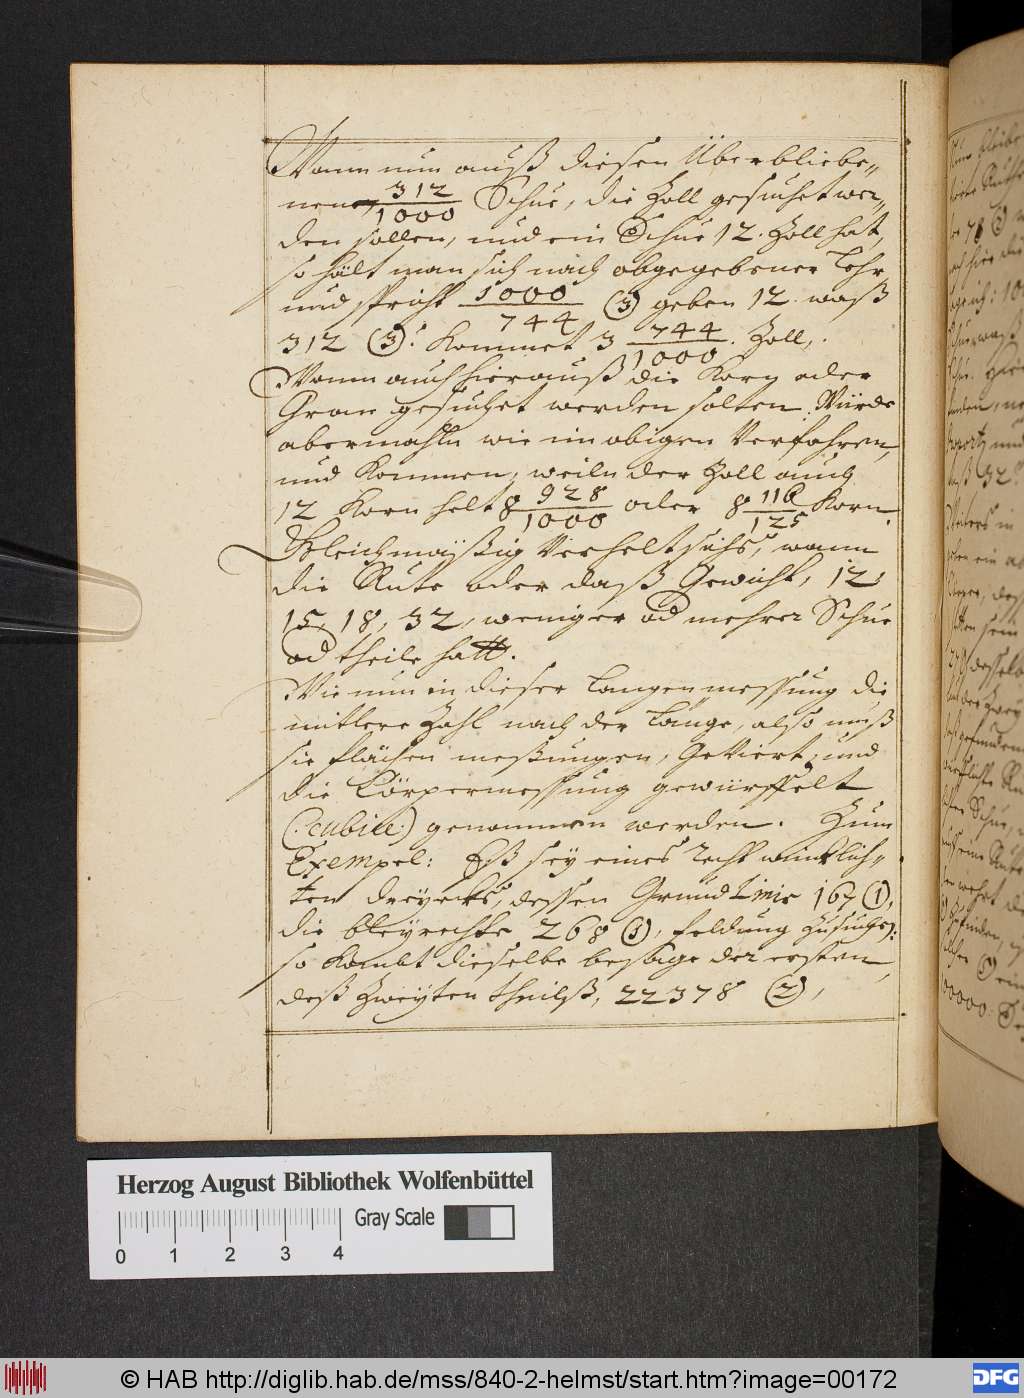 Wann nun auß diesen Überbliebe„
nen 312/1000 Schue, die Zoll gesuchet wer„
den sollen, und ein Schue 12. Zoll hat,
so hält man sich nach obgegebener Lehr
und spricht 1000/744 (3) geben 12. waß
312 (3)? Kommet 3 744/1000. Zoll,.
Wann auch hierauß die Korn oder
Gran gesuchet werden solten. Würde
abermahln wie im obigen Verfahren,
und Kommen, weiln der Zoll auch
12 Korn helt 8 928/1000 oder 8 116/125 Korn.
Gleichmäßig Verhelt sichs, wann
die Rute oder daß Gewicht, 12,
15, 18, 32, weniger od mehrer Schue
od theile hatt.
Wie nun in dieser Langenmessung die
mitlere Zahl nach der Länge, also muß
sie flächen meßungen, Geviert, und
die Körpermessung gewürffelt
(:cubice:) genommen werden. Zum
Exempel: Eß sey eines recht wincklich„
ten dreyecks, dessen Grund Linie 167 (1),
die bleyrechte 268 (3), feldung zusuchen:
so kombt dieselbe besage der ersten
deß Zweyten theilß, 22378 (2),
Herzog August Bibliothek Wolfenbüttel
Gray Scale
0 1 2 3 4
© HAB http://diglib.hab.de/mss/840-2-helmst/start.htm?image=00172
DFG